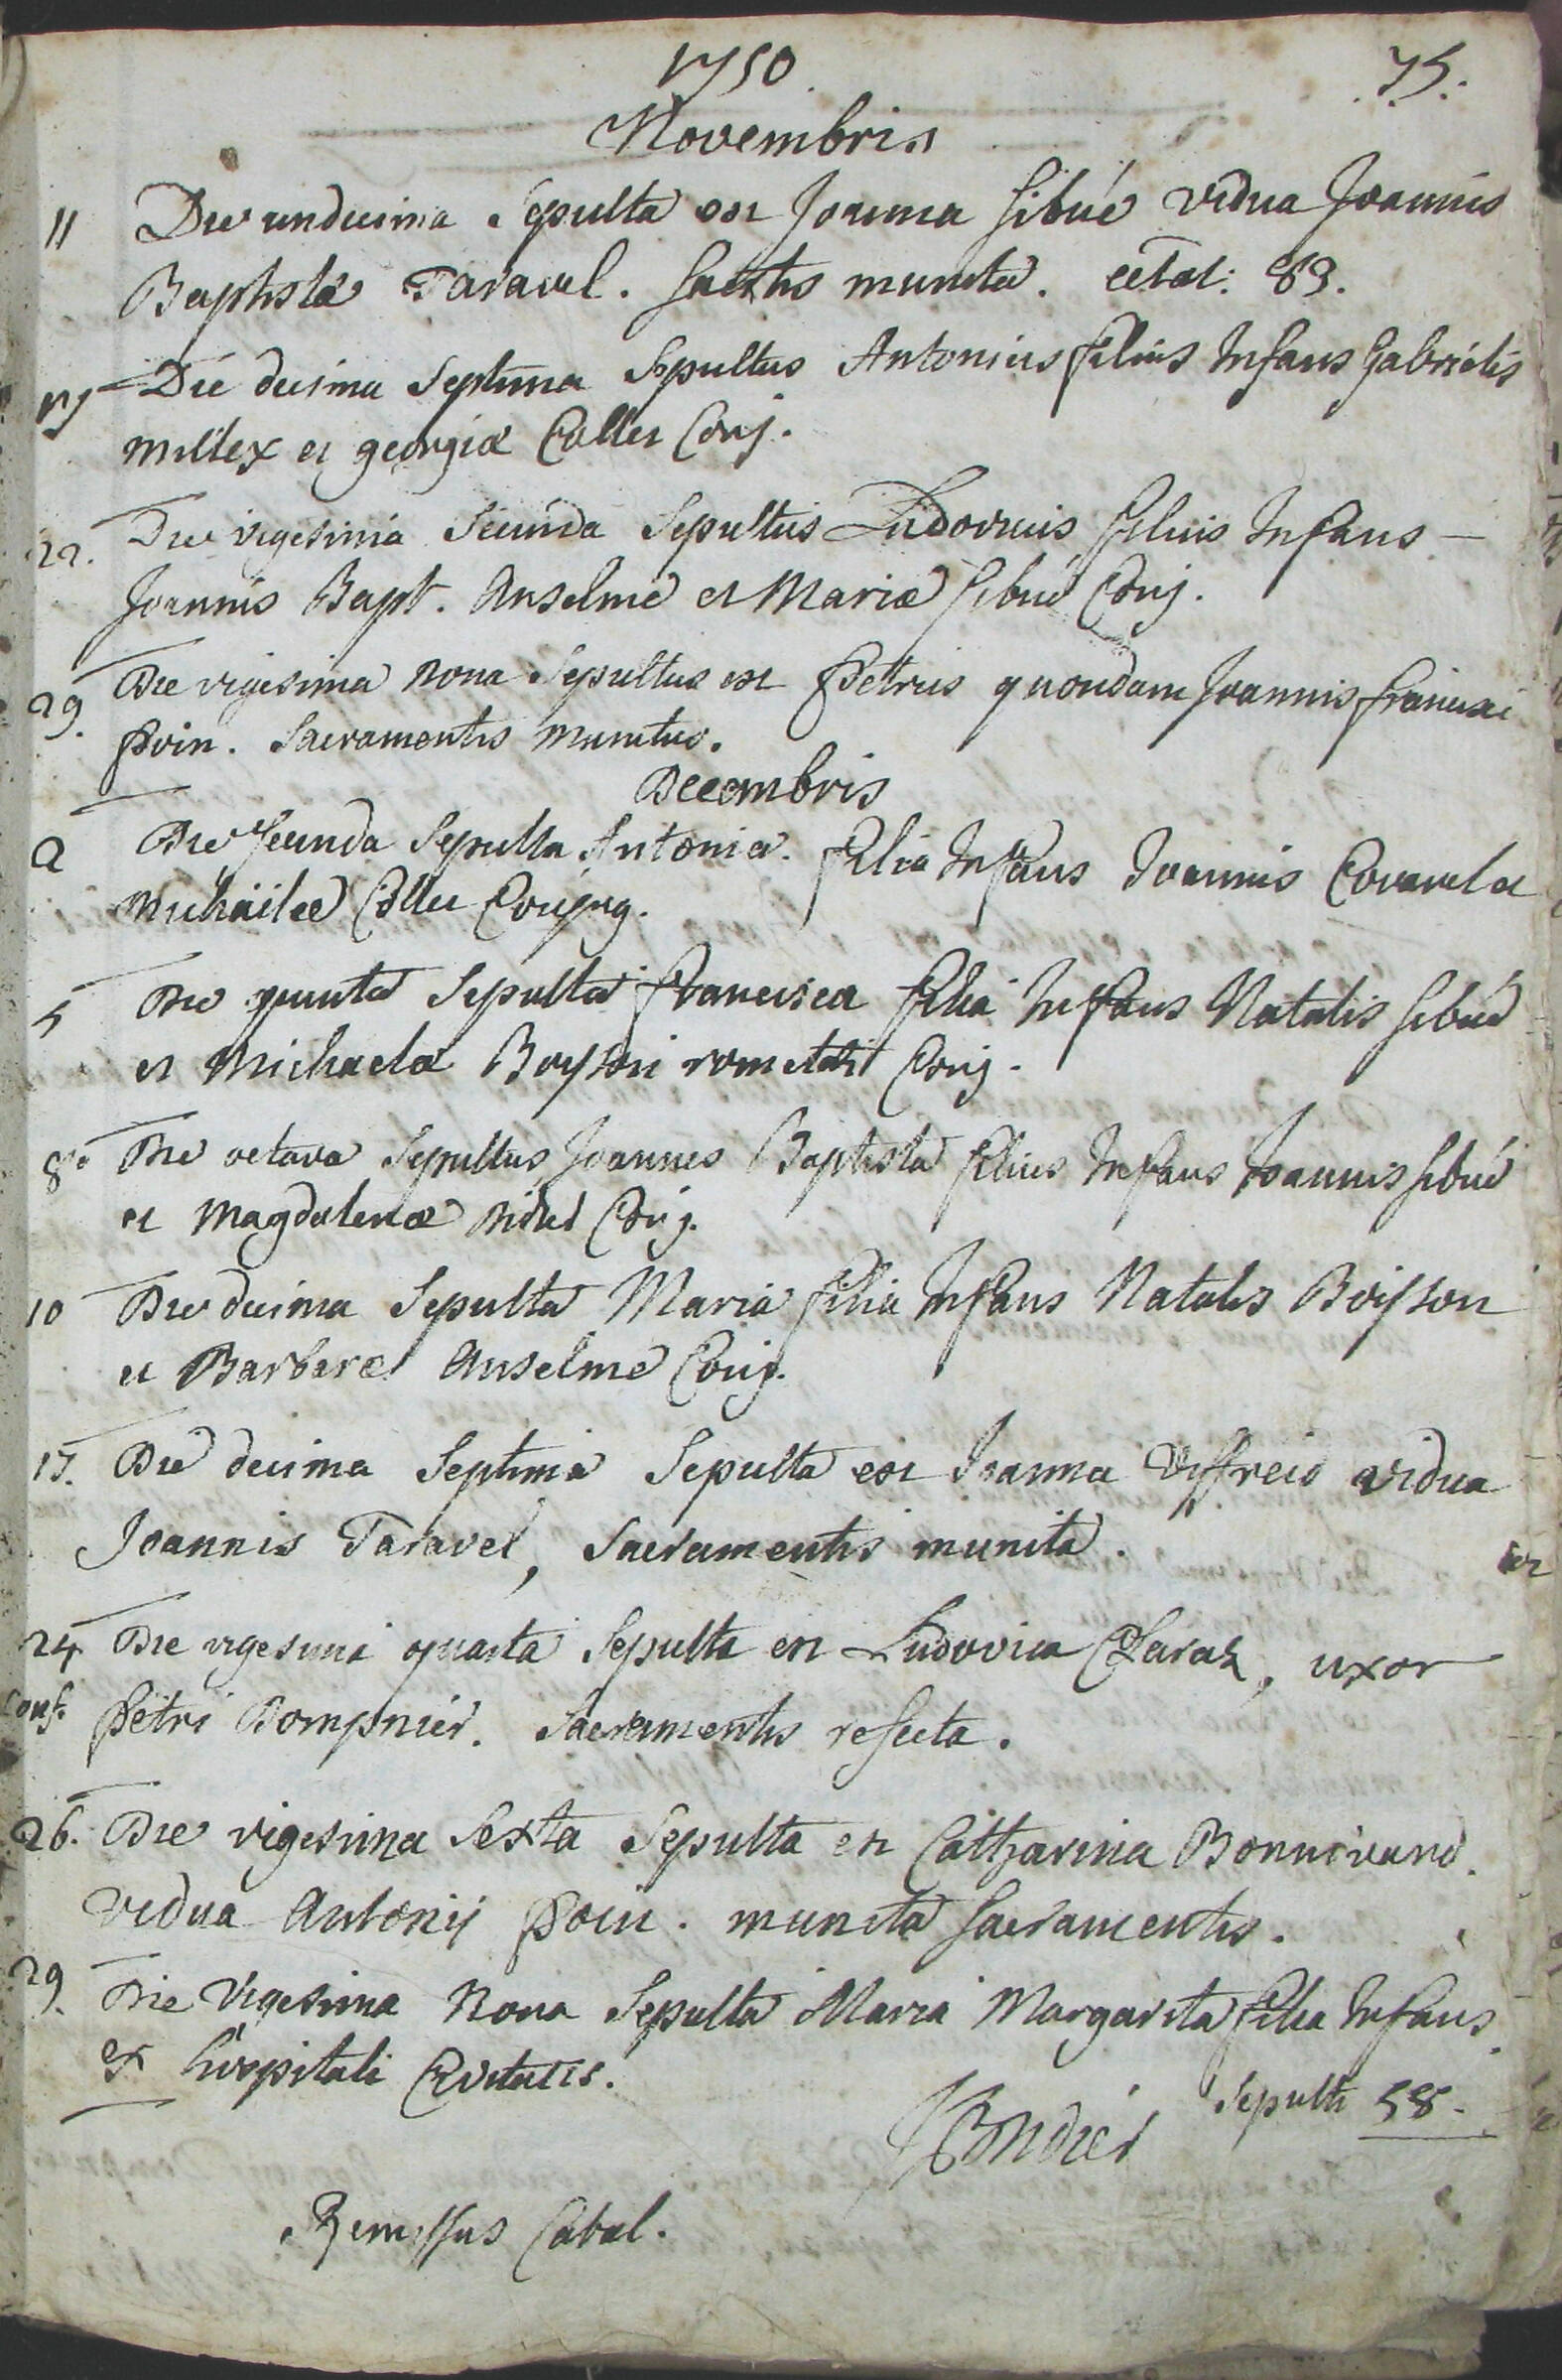 1750
75.
Novembris
11 Die undecima Sepulta est Joanna Sibué vidua Joannis
Baptistæ Taravel. Sactis munita. ætat: 83.
17 Die decima Septima Sepultus Antonius filius Infans Gabrielis
Millex et georgiæ Collet Conj.
22. Die vigesima Secunda Sepultus Ludovicus filius Infans
Joannis Bapt. Anselme et Mariæ Sibué Conj.
29. Die vigesima nona Sepultus est Petrus quondam Joannis francisci
Poin. Sacramentis munitus.
Decembris
2 Die Secunda Sepulta Antonia. filia Infans Joannis Coravel et
Michäelæ Collet Conjug.
5 Die quinta Sepulta francisca filia Infans Natalis Sibué
et Michaelæ Boysson Conj.
8. Die octava Sepultus Joannes Baptista filius Infans Joannis Sibué
et Magdalenæ Conj.
10 Die decima Sepulta Maria filia Infans Natalis Boisson
et Barbaræ Anselme Conj.
17. Die decima Septima Sepulta est Joanna Viffreis vidua
Joannis Taravel, Sacramentis munita.
24 Die vigesima quarta Sepulta est Ludovica Claraz, uxor
Conf. Petri Bompnier. Sacramentis refecta.
26. Die vigesima Sexta Sepulta est Catharina Bonnivard.
vidua Antonij Poin. munita Sacramentis.
29. Die Vigesima Nona Sepulta Maria Margarita filia Infans
ex hospitali Civitatis.
Sepulti 58.
Remissus Catal.